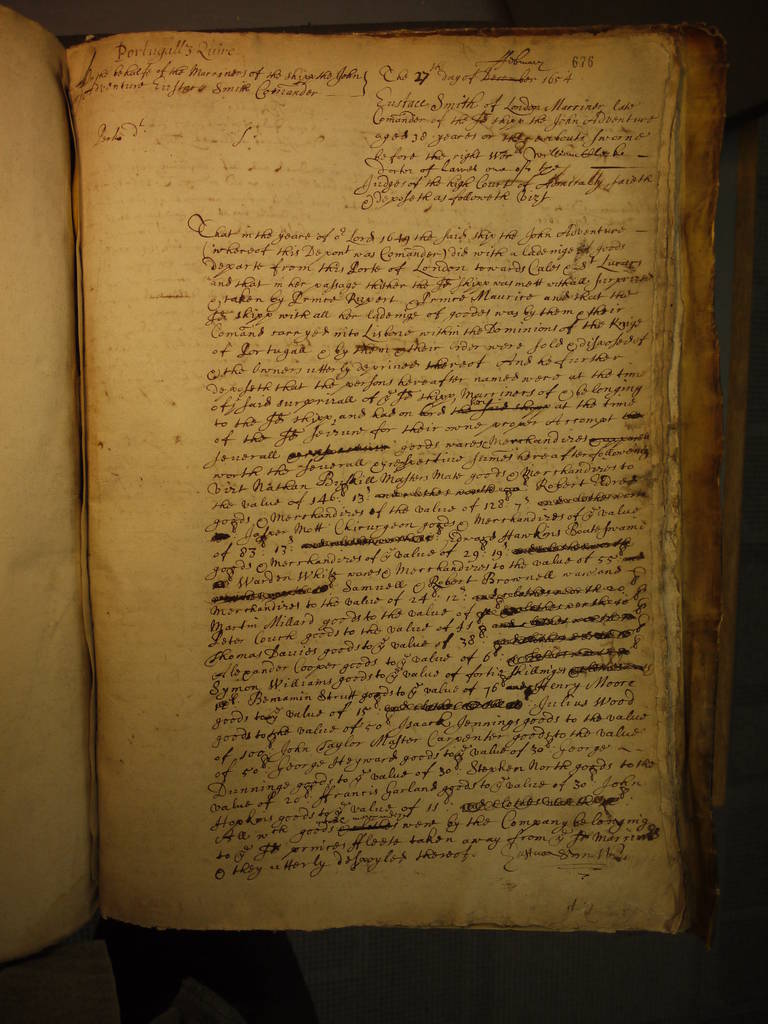 Portugall's Quire
676
In the behalfe of the Marriners of the shipp the John
Adventure Eustace Smith Comander
The 27th day of December February 1654
Eustace Smith of London Marriner late
Comander of the sd shipp the John Adventure
aged 38 yeares or thereabouts sworne
before the right Worll William Clerke
doctor of Lawes one of ye
Judges of the high Court of Admiralty saieth
& deposeth as followeth Vizt
That in the yeare of or Lord 1649 the said ship the John Adventure
(whereof this Depont was Comander) did with a ladeinge of goods
departe from this Porte of London towards Cales & St Lucars
and that in her passage thither the sd shipp was mett withall surprized
& taken by Prince Rupert & Prince Maurice and that the
sd shipp with all her ladeinge of goodes was by them & their
Comand carryed into Lisbone within the Dominions of the Kinge
of Portugall & by their Order were sold & disposed of
& the Owners utterly deprived thereof And he further
deposeth that the persons hereafter named were at the tyme
of ye said surprizall of ye sd shipp Marriners of & belonging
to the sd shipp, and had on bord at the tyme
of the sd seizure for their owne proper Accompt
severall goods wares & Merchandizes
worth the severall & respective summes hereafter followeing
Vizt Nathan Masters Mate goods & Merchandizes to
the value of 146 : 13 Robert
goods & Merchandizes of the value of 128 : 7
Jesper Mott Chirurgeon goods & Merchandizes of ye value
of 83 : 13 Edward Hawkins Boateswaine
goods & Merchandizes of ye value of 29 : 19
Warden White wares & Merchandizes to the value of 55
Samuell & Robert Brownell wares and
Merchandizes to the value of 24 : 12
Martin Millard goods to the value of
Peter Couch goods to the value of
Thomas Davies goods to ye value of 38
Alexander Cooper goods to ye value of 6
Symon Williams goods to ye value of fortie shillinges
Beniamin Strutt goods to ye value of 76 Henry Moore
goods to ye value of 15 Julius Wood
goods to the value of 50 Isaack Jennings goods to the value
of 100 John Taylor Master Carpenter goods to the value
of 50 George Heyward goods to ye value of 30 George
Dunninge goods to ye value of 30 Stephen North goods to the
value of 20 Francis Garland goods to ye value of 30 John
Hopkins goods to ye value of 11
All wch goods were by the Company belonging
to ye sd princes Fleete taken away from ye sd Marriners
& they utterly despoyled thereof.
Eustace Smith